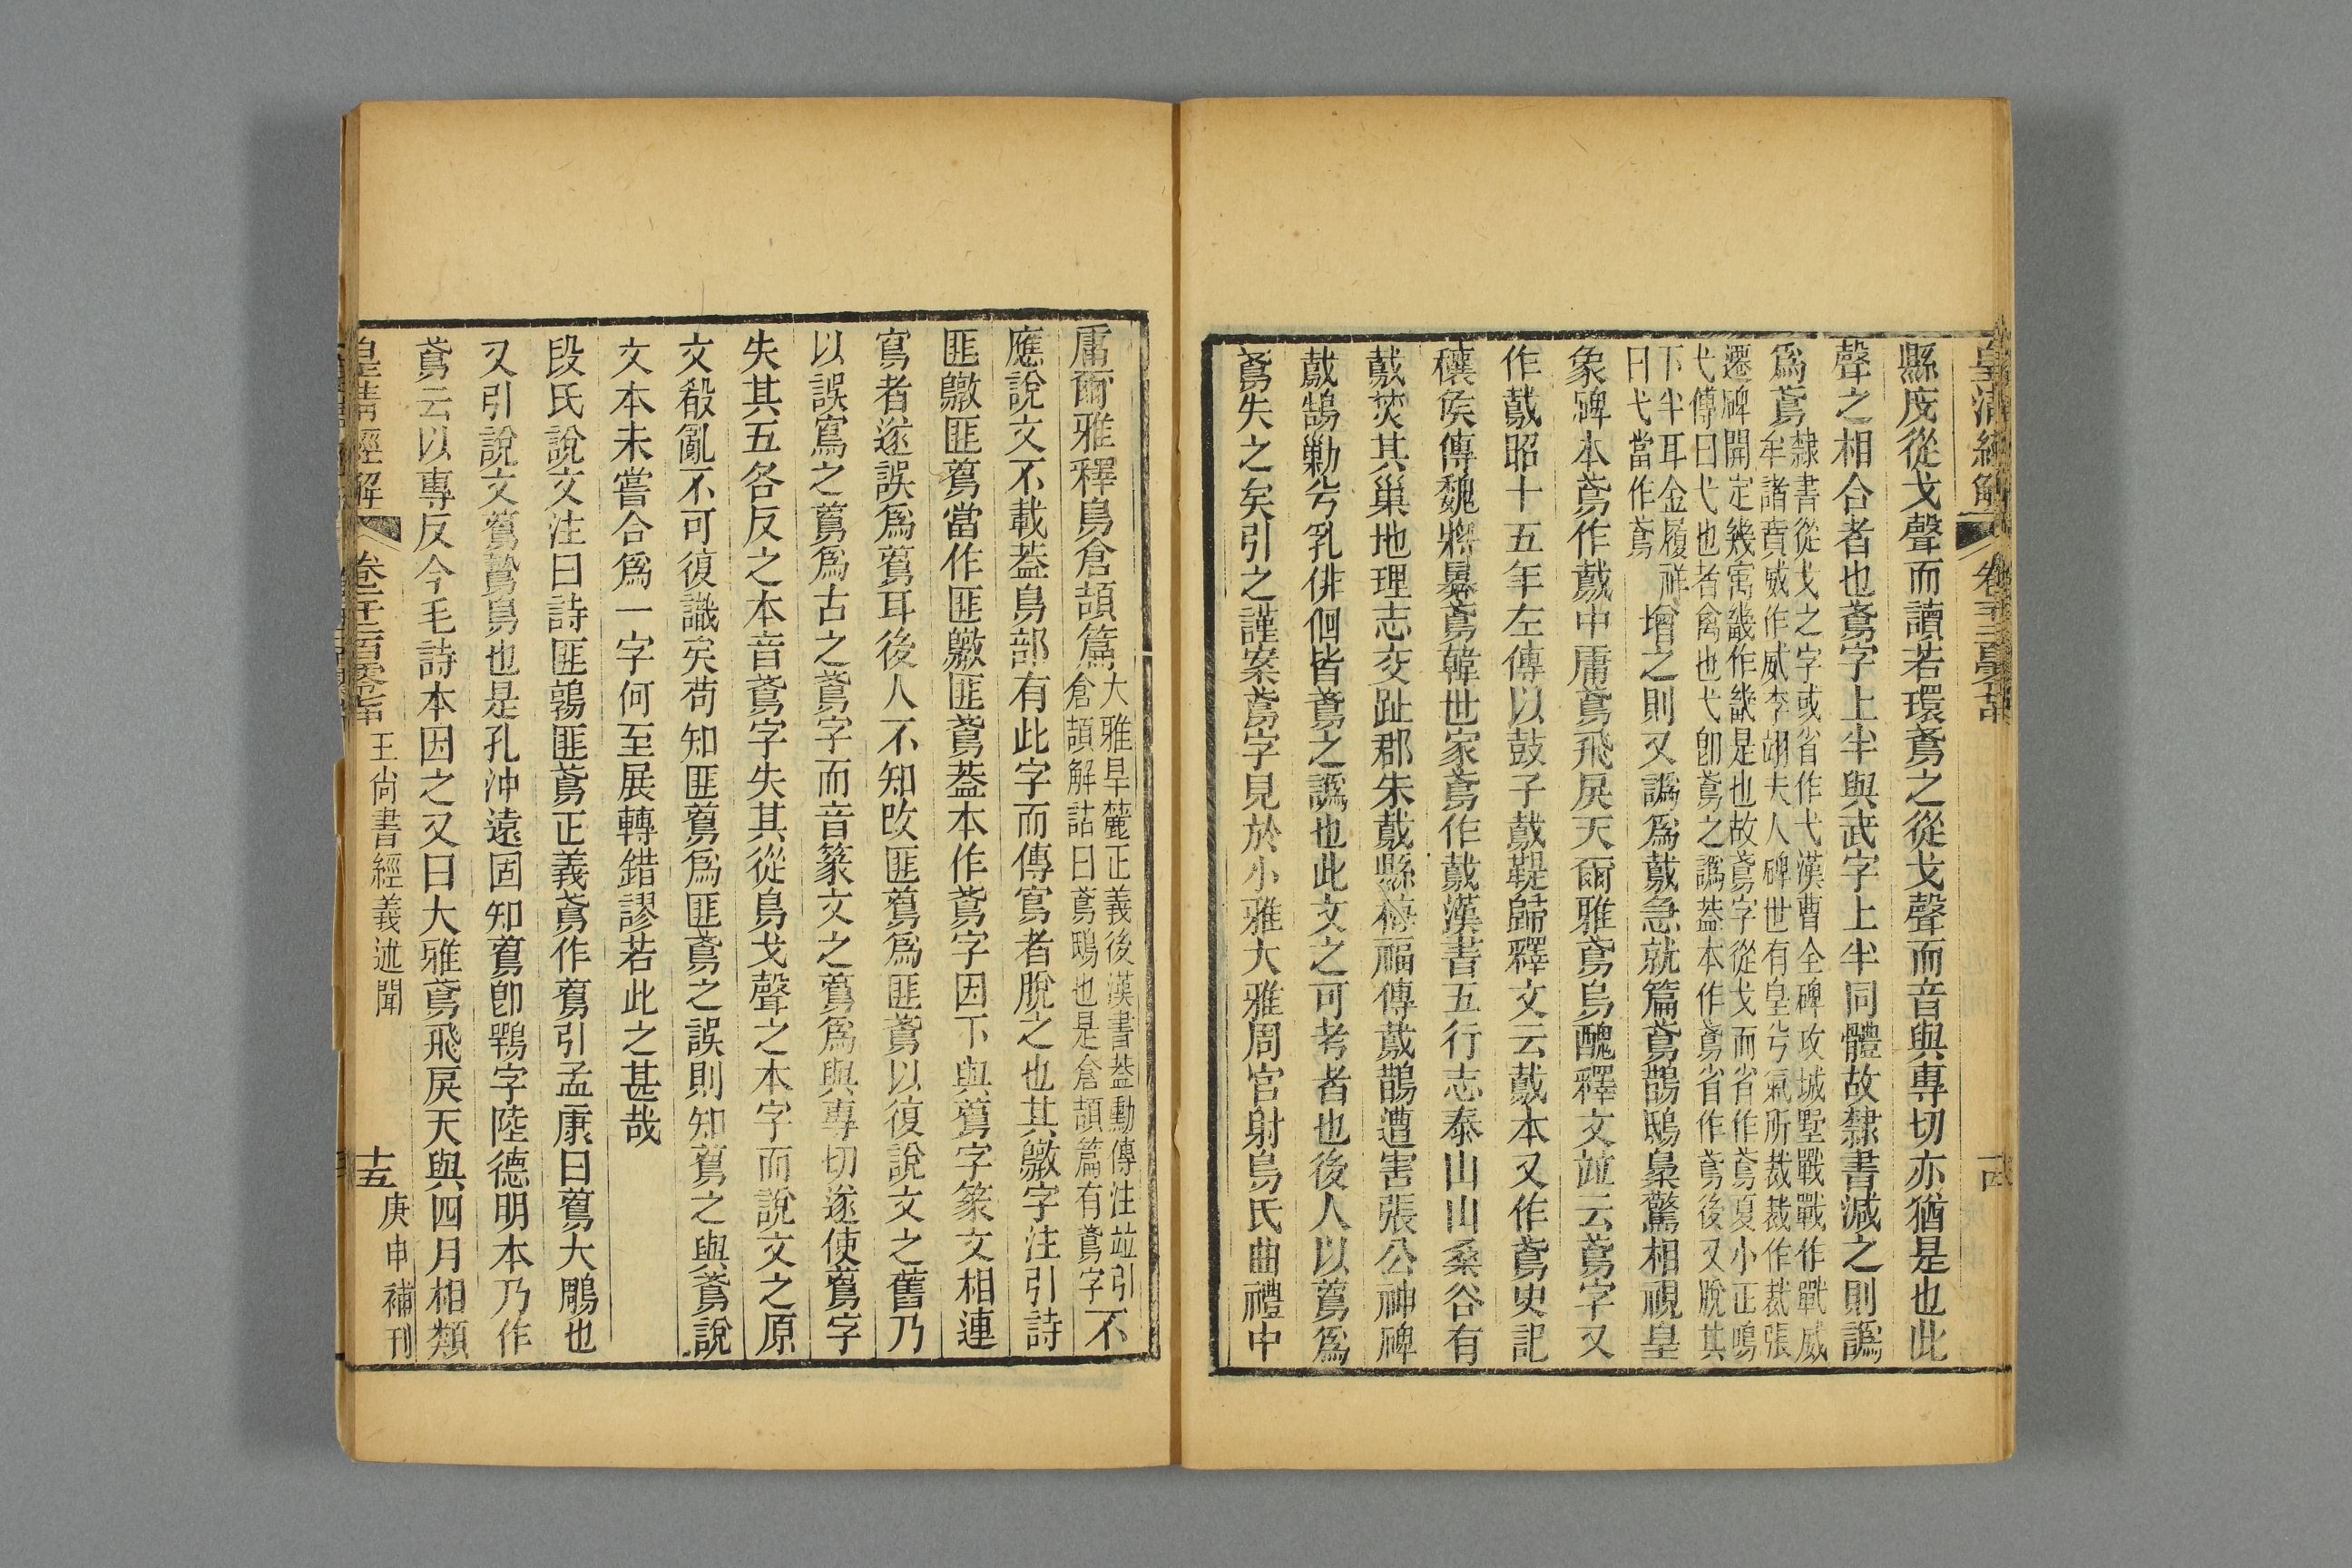 縣庋從戈聲而讀若環鳶之從戈聲而音與專切亦猶是也此
聲之相合者也鳶字上半與武字上半同體故隸書減之則譌
爲鳶
隸書從戈之字或省作弋漢曹全碑攻城墅戰戰作戰威
牟諸賁威作威李翊夫人碑世有皇兮氣所裁裁作裁張
遷碑開定幾㝢畿作畿是也故鳶字從戈而省作鳶夏小正鳴
弋傳曰弋也者禽也弋卽鳶之譌葢本作鳶省作鳶後又脫其
下半耳金履祥
曰弋當作鳶
增之則又譌爲鷻急就篇鳶鵲鴟梟驚相視皇
象碑本鳶作鷻中庸鳶飛戾天爾雅鳶烏醜釋文竝云鳶字又
作鷻昭十五年左傳以鼓子鷻鞮歸釋文云鷻本又作鳶史記
穰侯傳魏將暴鳶韓世家鳶作鷻漢書五行志泰山山桑谷有
鷻焚其巢地理志交趾郡朱鷻縣梅福傳鷻鵲遭害張公神碑
鷻鵠勦兮乳俳佪皆鳶之譌也此文之可考者也後人以蔦爲
鳶失之矣引之謹案鳶字見於小雅大雅周官射鳥氏曲禮中
庸爾雅釋鳥倉頡篇
大雅旱麓正義後漢書葢勳傳注竝引
倉頡解詁曰鳶鴟也是倉頡篇有鳶字
不
應說文不載葢鳥部有此字而傳寫者脫之也其鷻字注引詩
匪鷻匪蔦當作匪鷻匪鳶葢本作鳶字因下與蔦字篆文相連
寫者遂誤爲蔦耳後人不知改匪蔦爲匪鳶以復說文之舊乃
以誤寫之蔦爲古之鳶字而音篆文之蔦爲與專切遂使蔦字
失其五各反之本音鳶字失其從鳥戈聲之本字而說文之原
文殽亂不可復識矣苟知匪蔦爲匪鳶之誤則知蔦之與鳶說
文本未嘗合爲一字何至展轉錯謬若此之甚哉
段氏說文注曰詩匪鶉匪鳶正義鳶作蔦引孟康曰蔦大鵰也
又引說文蔦鷙鳥也是孔沖遠固知蔦卽鶚字陸德明本乃作
鳶云以專反今毛詩本因之又曰大雅鳶飛戾天與四月相類
皇清經解
王尙書經義述聞
十五
庚申補刊